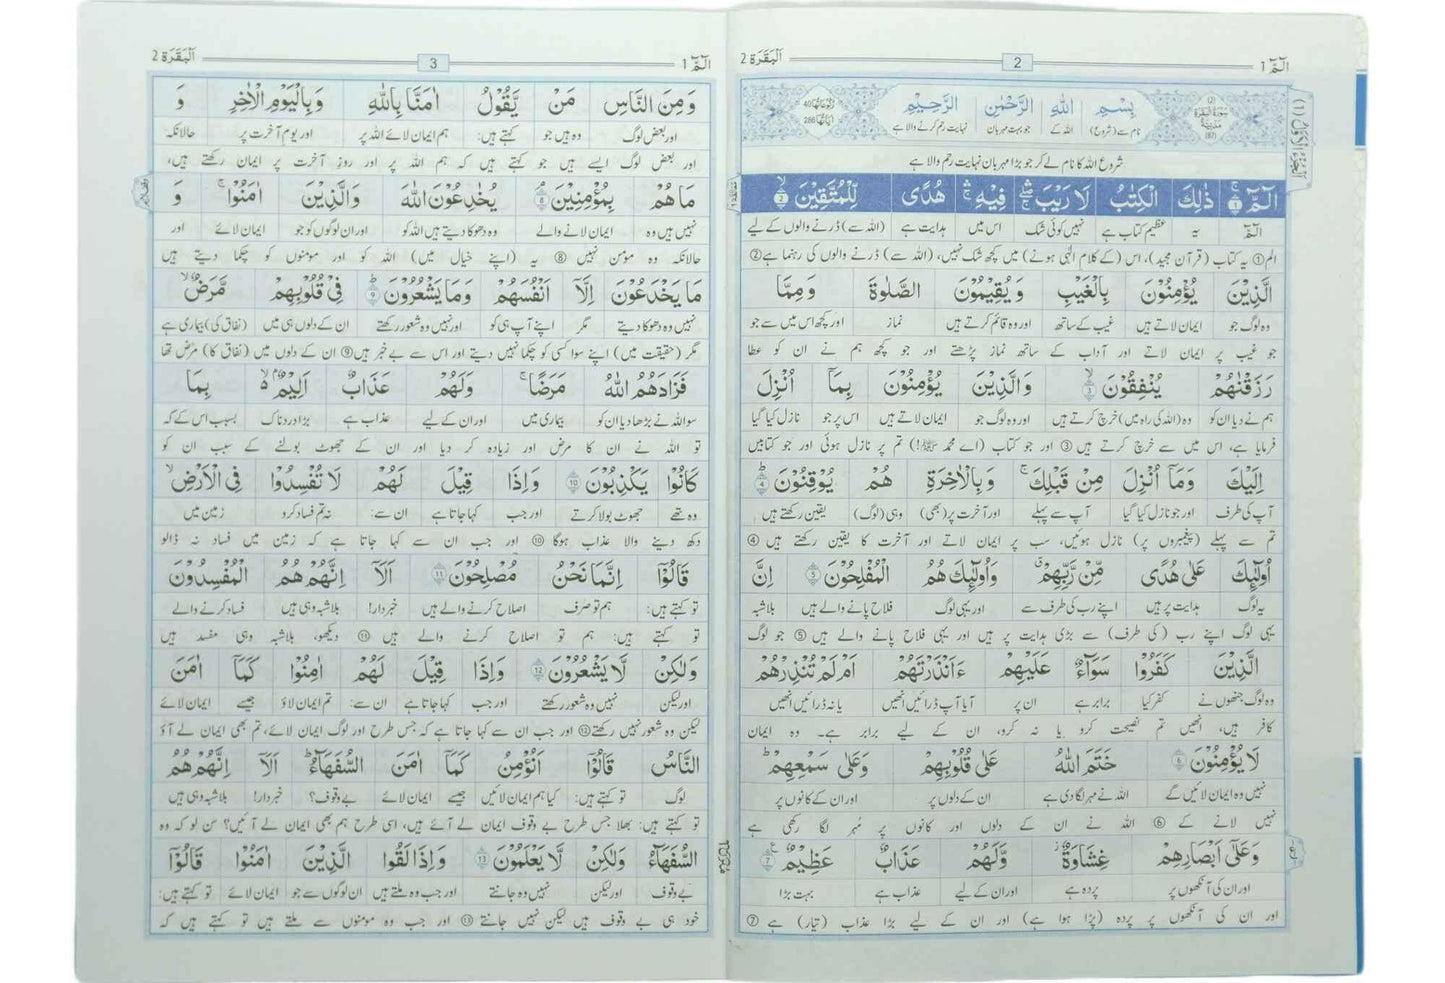 الٓمّٓ 1 2 اَلْبَقَرَة 2
(2) سُوْرَةُ الْبَقَرَةِ مَدَنِيَّةٌ (87) بِسْمِ اللّٰهِ الرَّحْمٰنِ الرَّحِيْمِ رُكُوْعَاتُهَا 40 اٰيَاتُهَا 286
نام سے (شروع) اللہ کے جو بہت مہربان نہایت رحم کرنے والا ہے
شروع اللہ کا نام لے کر جو بڑا مہربان نہایت رحم والا ہے
الٓمّٓ ۚ 1 ذٰلِكَ الْكِتٰبُ لَا رَيْبَ ۛ فِيْهِ ۛ هُدًى لِّلْمُتَّقِيْنَ ۙ 2
الم یہ عظیم کتاب ہے نہیں کوئی شک اس میں ہدایت ہے (اللہ سے) ڈرنے والوں کے لیے
الم ① یہ کتاب (قرآن مجید)، اس (کے کلام الٰہی ہونے) میں کچھ شک نہیں، (اللہ سے) ڈرنے والوں کی رہنما ہے ②
الَّذِيْنَ يُؤْمِنُوْنَ بِالْغَيْبِ وَ يُقِيْمُوْنَ الصَّلٰوةَ وَ مِمَّا
وہ لوگ جو ایمان لاتے ہیں غیب کے ساتھ اور وہ قائم کرتے ہیں نماز اور کچھ اس میں سے جو
جو غیب پر ایمان لاتے اور آداب کے ساتھ نماز پڑھتے اور جو کچھ ہم نے ان کو عطا
رَزَقْنٰهُمْ يُنْفِقُوْنَ ۙ 3 وَ الَّذِيْنَ يُؤْمِنُوْنَ بِمَاۤ اُنْزِلَ
ہم نے دیا ان کو وہ (اللہ کی راہ میں) خرچ کرتے ہیں اور وہ لوگ جو ایمان لاتے ہیں اس پر جو نازل کیا گیا
فرمایا ہے، اس میں سے خرچ کرتے ہیں ③ اور جو کتاب (اے محمد ﷺ!) تم پر نازل ہوئی اور جو کتابیں
اِلَيْكَ وَ مَاۤ اُنْزِلَ مِنْ قَبْلِكَ ۚ وَ بِالْاٰخِرَةِ هُمْ يُوْقِنُوْنَ ؕ 4
آپ کی طرف اور جو نازل کیا گیا آپ سے پہلے اور آخرت پر (بھی) وہی (لوگ) یقین رکھتے ہیں
تم سے پہلے (پیغمبروں پر) نازل ہوئیں، سب پر ایمان لاتے اور آخرت کا یقین رکھتے ہیں ④
اُولٰٓئِكَ عَلٰى هُدًى مِّنْ رَّبِّهِمْ ۗ وَ اُولٰٓئِكَ هُمُ الْمُفْلِحُوْنَ 5 اِنَّ
یہ لوگ ہدایت پر ہیں اپنے رب کی طرف سے اور یہی لوگ فلاح پانے والے ہیں بلاشبہ
یہی لوگ اپنے رب (کی طرف) سے بڑی ہدایت پر ہیں اور یہی فلاح پانے والے ہیں ⑤ جو لوگ
الَّذِيْنَ كَفَرُوْا سَوَآءٌ عَلَيْهِمْ ءَاَنْذَرْتَهُمْ اَمْ لَمْ تُنْذِرْهُمْ
وہ لوگ جنھوں نے کفر کیا برابر ہے ان پر آیا آپ ڈرائیں انھیں یا نہ ڈرائیں انھیں
کافر ہیں، انھیں تم نصیحت کرو یا نہ کرو، ان کے لیے برابر ہے۔ وہ ایمان
لَا يُؤْمِنُوْنَ 6 خَتَمَ اللّٰهُ عَلٰى قُلُوْبِهِمْ وَ عَلٰى سَمْعِهِمْ ؕ
نہیں وہ ایمان لائیں گے اللہ نے مہر لگا دی ہے ان کے دلوں پر اور ان کے کانوں پر
نہیں لانے کے ⑥ اللہ نے ان کے دلوں اور کانوں پر مُہر لگا رکھی ہے
وَ عَلٰۤى اَبْصَارِهِمْ غِشَاوَةٌ ؗ وَّ لَهُمْ عَذَابٌ عَظِيْمٌ 7
اور ان کی آنکھوں پر پردہ ہے اور ان کے لیے عذاب ہے بہت بڑا
اور ان کی آنکھوں پر پردہ (پڑا ہوا ہے) اور ان کے لیے بڑا عذاب (تیار) ہے ⑦
الٓمّٓ 1 3 اَلْبَقَرَة 2
وَ مِنَ النَّاسِ مَنْ يَّقُوْلُ اٰمَنَّا بِاللّٰهِ وَ بِالْيَوْمِ الْاٰخِرِ وَ
اور بعض لوگ وہ ہیں جو کہتے ہیں: ہم ایمان لائے اللہ پر اور یوم آخرت پر حالانکہ
اور بعض لوگ ایسے ہیں جو کہتے ہیں کہ ہم اللہ پر اور روزِ آخرت پر ایمان رکھتے ہیں،
مَا هُمْ بِمُؤْمِنِيْنَ ۘ 8 يُخٰدِعُوْنَ اللّٰهَ وَ الَّذِيْنَ اٰمَنُوْا ۚ وَ
نہیں ہیں وہ ایمان لانے والے وہ دھوکا دیتے ہیں اللہ کو اور ان لوگوں کو جو ایمان لائے اور
حالانکہ وہ مؤمن نہیں ⑧ یہ (اپنے خیال میں) اللہ کو اور مومنوں کو چکما دیتے ہیں
مَا يَخْدَعُوْنَ اِلَّاۤ اَنْفُسَهُمْ وَ مَا يَشْعُرُوْنَ ؕ 9 فِيْ قُلُوْبِهِمْ مَّرَضٌ ۙ
نہیں وہ دھوکا دیتے مگر اپنے آپ ہی کو اور نہیں وہ شعور رکھتے ان کے دلوں ہی میں (نفاق کی) بیماری ہے
مگر (حقیقت میں) اپنے سوا کسی کو چکما نہیں دیتے اور اس سے بے خبر ہیں ⑨ ان کے دلوں میں (نفاق کا) مرض تھا
فَزَادَهُمُ اللّٰهُ مَرَضًا ۚ وَ لَهُمْ عَذَابٌ اَلِيْمٌ ۢ ۙ بِمَا
سو اللہ نے بڑھا دیا ان کو بیماری میں اور ان کے لیے عذاب ہے بڑا دردناک بسبب اس کے کہ
تو اللہ نے ان کا مرض اور زیادہ کر دیا اور ان کے جھوٹ بولنے کے سبب ان کو
كَانُوْا يَكْذِبُوْنَ 10 وَ اِذَا قِيْلَ لَهُمْ لَا تُفْسِدُوْا فِي الْاَرْضِ ۙ
وہ تھے جھوٹ بولا کرتے اور جب کہا جاتا ہے ان سے: نہ تم فساد کرو زمین میں
دکھ دینے والا عذاب ہوگا ⑩ اور جب ان سے کہا جاتا ہے کہ زمین میں فساد نہ ڈالو
قَالُوْۤا اِنَّمَا نَحْنُ مُصْلِحُوْنَ 11 اَلَاۤ اِنَّهُمْ هُمُ الْمُفْسِدُوْنَ
تو کہتے ہیں: ہم تو صرف اصلاح کرنے والے ہیں خبردار! بلاشبہ وہی ہیں فساد کرنے والے
تو کہتے ہیں: ہم تو اصلاح کرنے والے ہیں ⑪ دیکھو، بلاشبہ وہی مفسد ہیں
وَ لٰكِنْ لَّا يَشْعُرُوْنَ 12 وَ اِذَا قِيْلَ لَهُمْ اٰمِنُوْا كَمَاۤ اٰمَنَ
اور لیکن نہیں وہ شعور رکھتے اور جب کہا جاتا ہے ان سے: تم ایمان لاؤ جیسے ایمان لائے
لیکن وہ شعور نہیں رکھتے ⑫ اور جب ان سے کہا جاتا ہے کہ جس طرح اور لوگ ایمان لائے، تم بھی ایمان لے آؤ
النَّاسُ قَالُوْۤا اَنُؤْمِنُ كَمَاۤ اٰمَنَ السُّفَهَآءُ ؕ اَلَاۤ اِنَّهُمْ هُمُ
لوگ تو کہتے ہیں: کیا ہم ایمان لائیں جیسے ایمان لائے بے وقوف؟ خبردار! بلاشبہ وہی ہیں
تو کہتے ہیں: بھلا جس طرح بے وقوف ایمان لے آئے ہیں، اسی طرح ہم بھی ایمان لے آئیں؟ سن لو کہ وہ
السُّفَهَآءُ وَ لٰكِنْ لَّا يَعْلَمُوْنَ 13 وَ اِذَا لَقُوا الَّذِيْنَ اٰمَنُوْا قَالُوْۤا
بے وقوف اور لیکن نہیں وہ جانتے اور جب وہ ملتے ہیں ان لوگوں سے جو ایمان لائے تو کہتے ہیں:
خود ہی بے وقوف ہیں لیکن نہیں جانتے ⑬ اور جب وہ مومنوں سے ملتے ہیں تو کہتے ہیں کہ